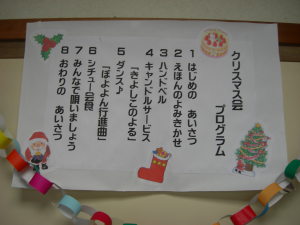 クリスマス会
プログラム
1 はじめの あいさつ
2 えほんのよみきかせ
3 ハンドベル
4 キャンドルサービス
「きよしこのよる」
5 ダンス♪
「ぽよよん行進曲」
6 シチュー会食
7 みんなで唄いましょう
8 おわりの あいさつ